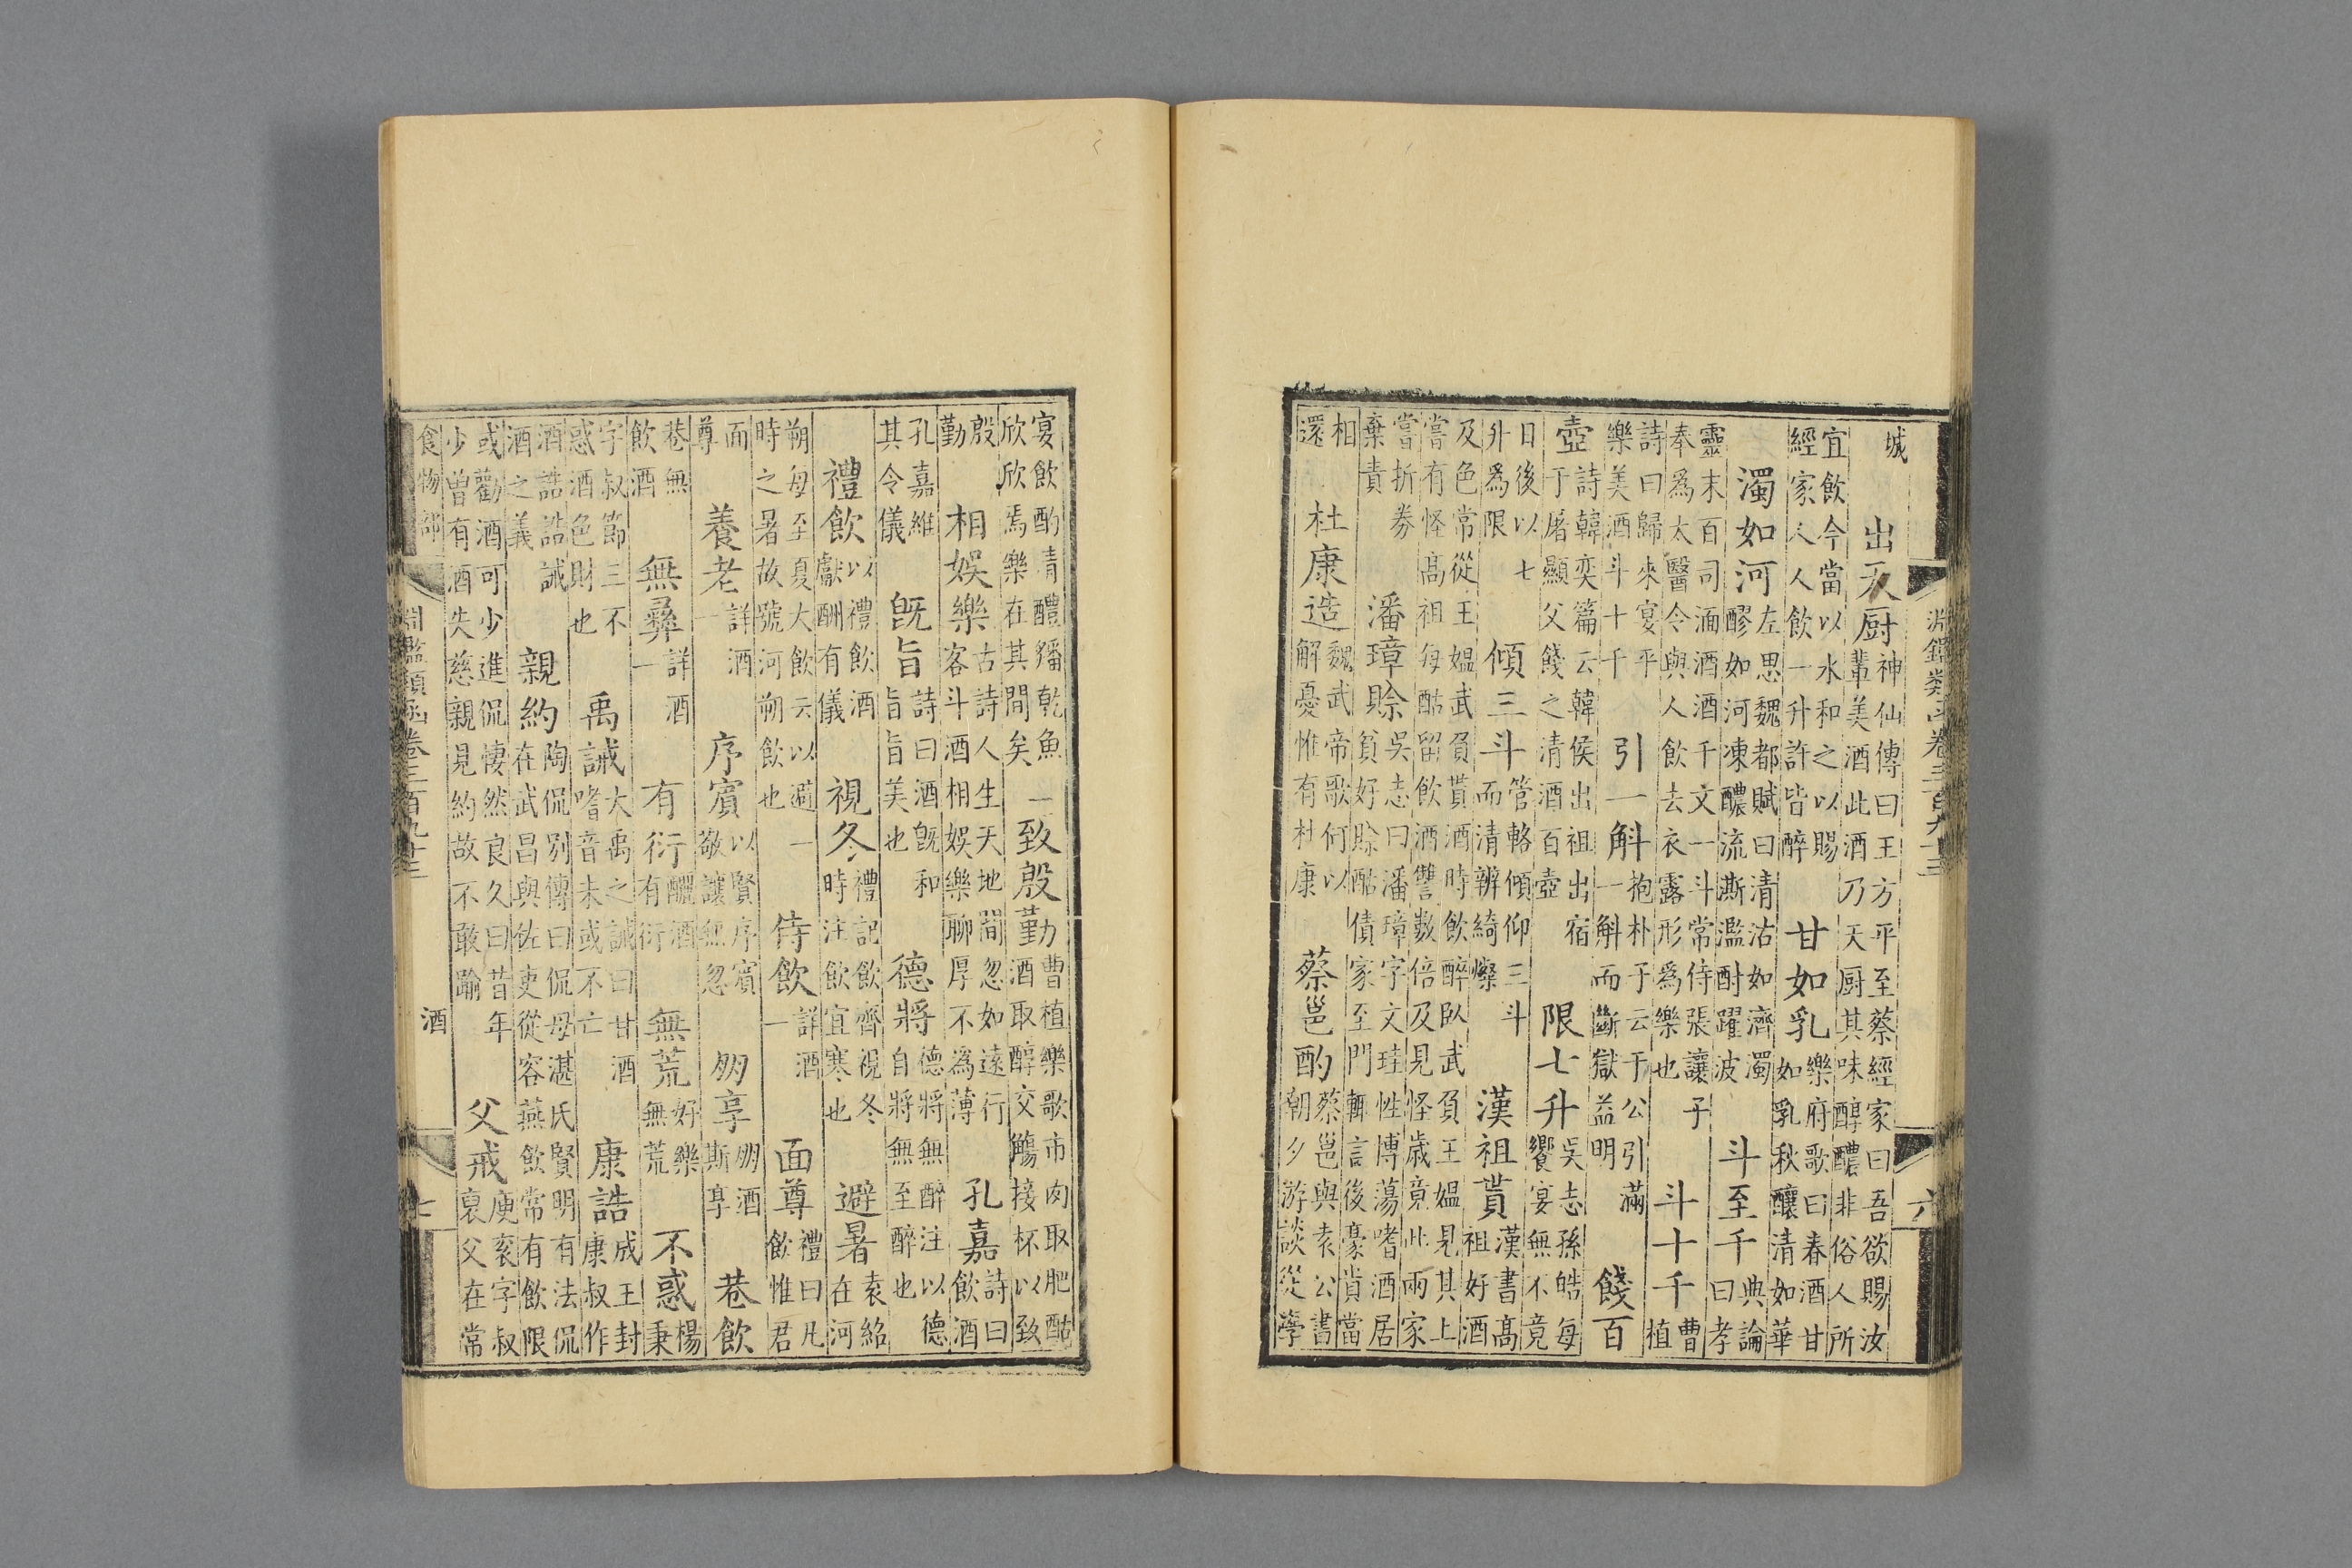 淵鑑類函卷三百九十三 六
城
出天厨
神仙傳曰王方平至蔡經家曰吾欲賜汝
輩美酒此酒乃天厨其味醇醲非俗人所
宜飲今當以水和之以賜
經家人人飲一升許皆醉
甘如乳
樂府歌曰春酒甘
如乳秋釀清如華
濁如河
左思魏都賦曰清沽如濟濁
醪如河凍醲流澌濫酎躍波
斗至千
典論
曰孝
靈末百司湎酒酒千文一斗常侍張讓子
奉爲太醫令與人飲去衣露形爲樂也
斗十千
曹
植
詩曰歸來宴平
樂美酒斗十千
引一斛
抱朴子云于公引滿
一斛而斷獄益明
餞百
壺
詩韓奕篇云韓侯出祖出宿
于屠顯父餞之清酒百壺
限七升
吳志孫皓每
饗宴無不竟
日後以七
升爲限
傾三斗
管輅傾仰三斗
而清辨綺燦
漢祖貰
漢書高
祖好酒
及色常從王媼武負貰酒時飲醉臥武負王媼見其上
嘗有怪高祖每酤留飲酒讐數倍及見怪歲竟此兩家
嘗折券
棄責
潘璋賒
吳志曰潘璋字文珪性博蕩嗜酒居
貧好賒酤債家至門輒言後豪貴當
相
還
杜康造
魏武帝歌何以
解憂惟有杜康
蔡邕酌
蔡邕與袁公書
朝夕游談從學
宴飲酌清醴燔乾魚
欣欣焉樂在其間矣
一致殷勤
曹植樂歌市肉取肥酤
酒取醇交觴接杯以致
殷
勤
相娛樂
古詩人生天地間忽如遠行
客斗酒相娛樂聊厚不爲薄
孔嘉
詩曰
飲酒
孔嘉維
其令儀
旣旨
詩曰酒旣和
旨旨美也
德將
德將無醉注以德
自將無至醉也
禮飲
以禮飲酒
獻酬有儀
視冬
禮記飲齊視冬
時注飲宜寒也
避暑
袁紹
在河
朔每至夏大飲云以避一
時之暑故號河朔飲也
侍飲
詳酒
一
面尊
禮曰凡
飲惟君
面
尊
養老
詳酒
一
序賓
以賢序賓
敬讓無忽
朋享
朋酒
斯享
巷飲
巷無
飲酒
無彝
詳酒
一
有衍
釃酒
有衍
無荒
好樂
無荒
不惑
楊
秉
字叔節三不
惑酒色財也
禹誡
大禹之誡曰甘酒
嗜音未或不亡
康誥
成王封
康叔作
酒誥誥誡
酒之義
親約
陶侃別傳曰侃母湛氏賢明有法侃
在武昌與佐吏從容燕飲常有飲限
或勸酒可少進侃悽然良久曰昔年
少曾有酒失慈親見約故不敢踰
父戒
庾袞字叔
裒父在常
食物部 淵鑑類函卷三百九十三 酒 七